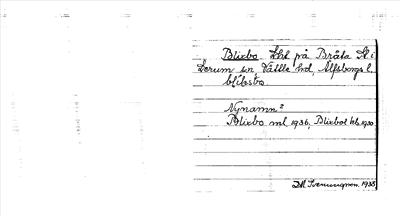 Blixbo Lht på Bråta St i
Lerum sn, Vättle hd, Älfsborgs l.
Nynamn?
Blixbo ml. 1936, Blixbol hb. 1930
DM Svenungson. 1938